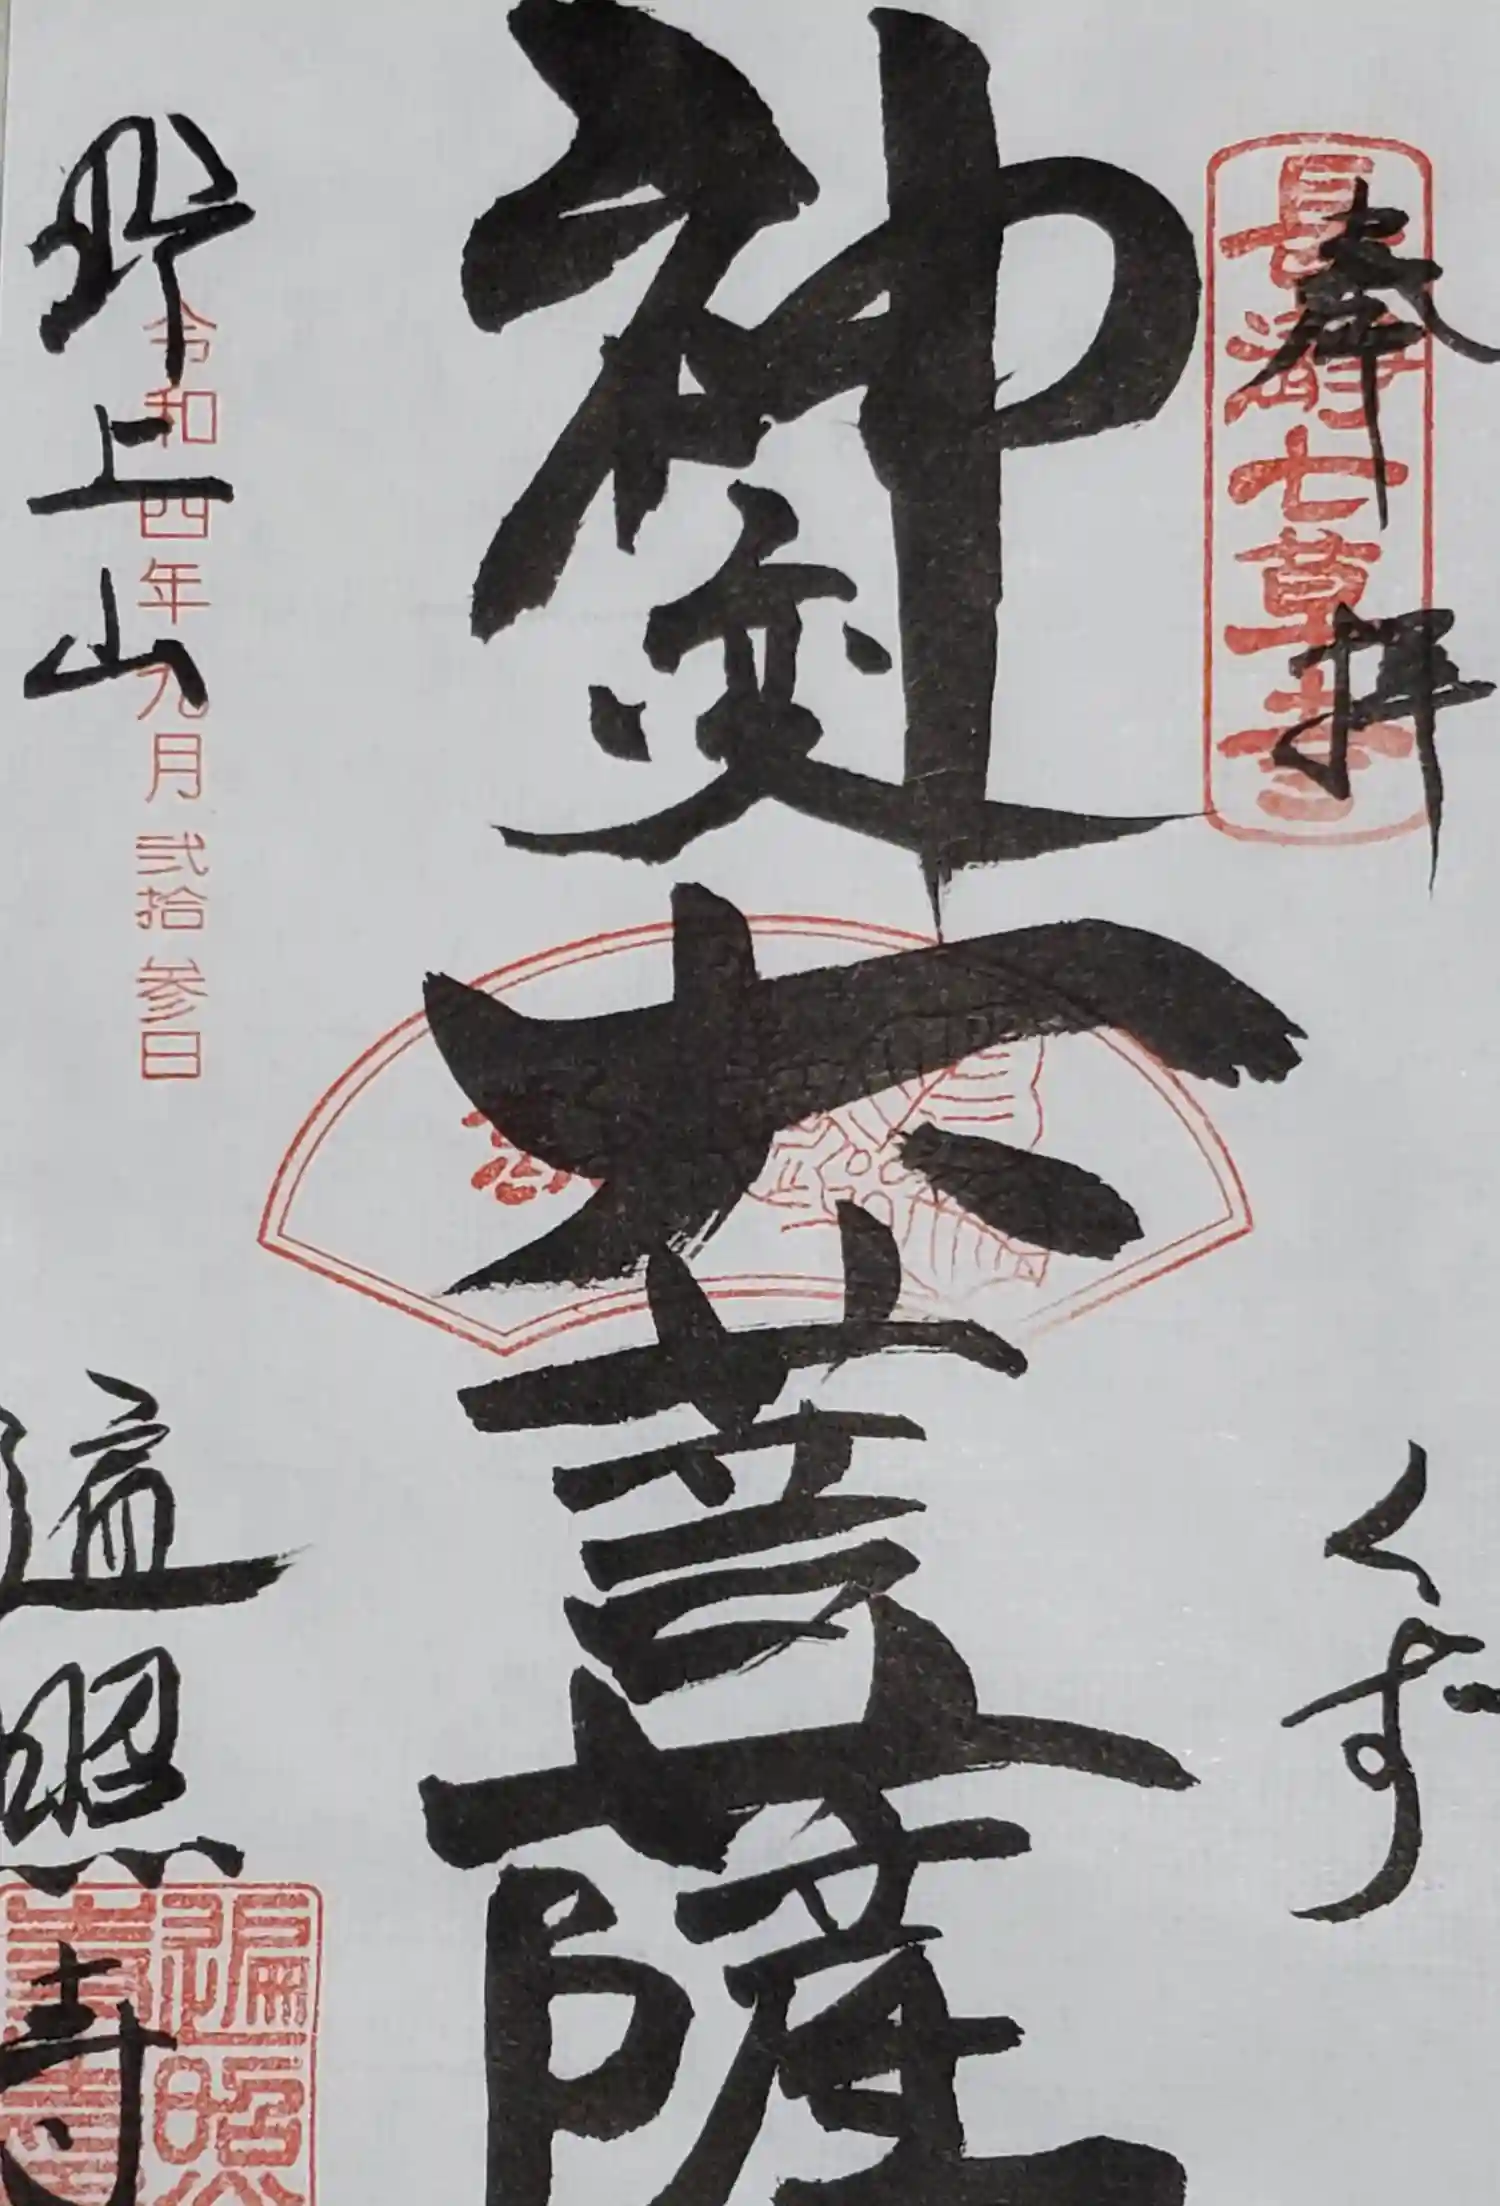 奉拝
長瀞七草寺
くず
神変大菩薩
令和四年九月弐拾参日
野上山
遍照寺
遍照